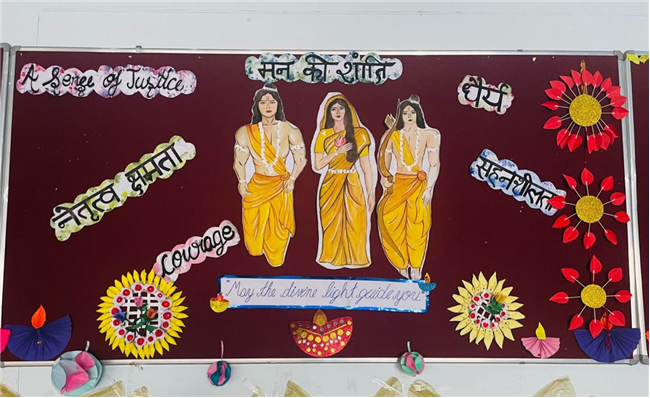 A Sense of Justice
मन की शांति
धैर्य
नेतृत्व क्षमता
सहनशीलता
Courage
May the divine light guide you